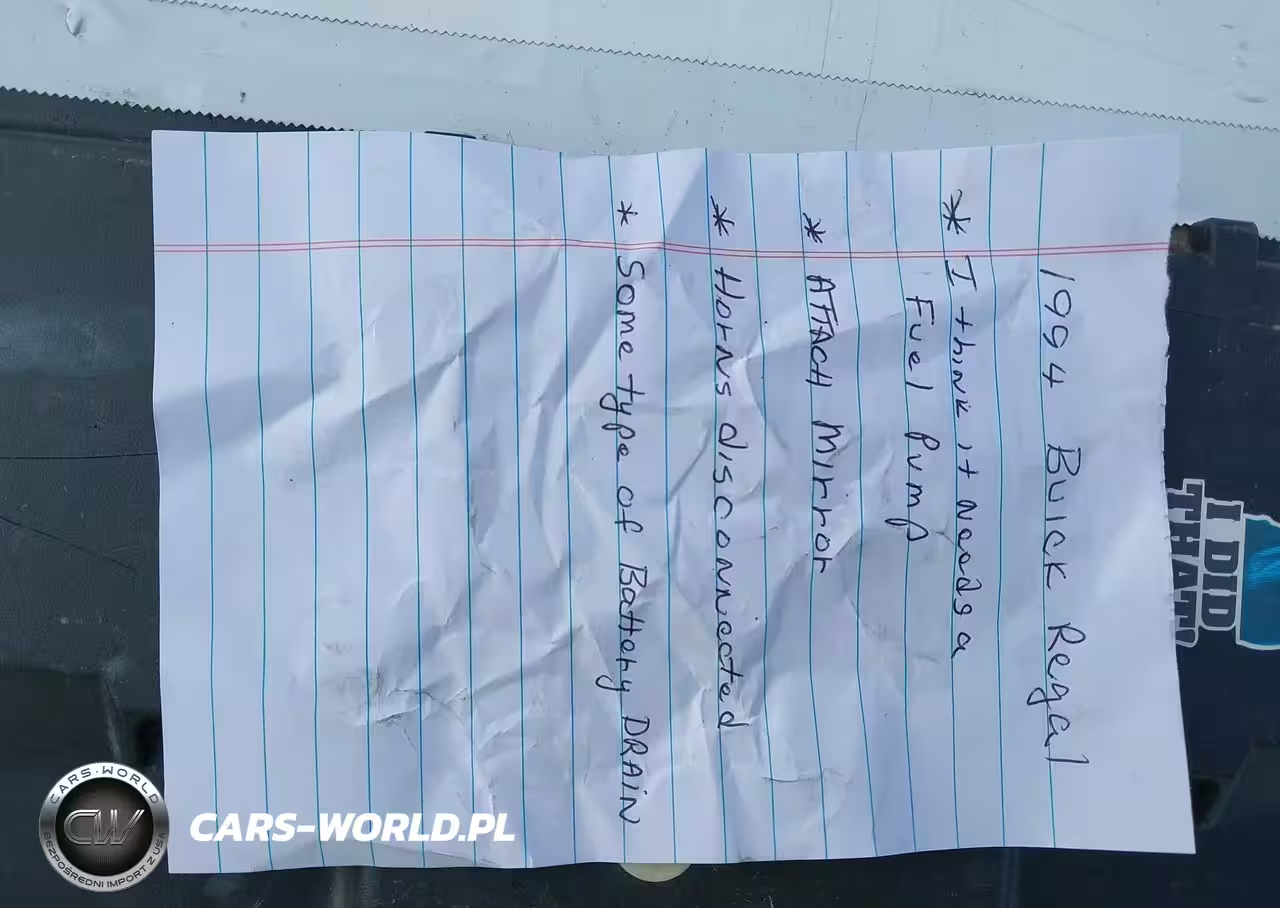 1994 Buick Regal
* I think it needs a
Fuel Pump
* ATTACH Mirror
* Horns disconnected
* Some type of Battery DRAIN
I DID
THAT!
CARS-WORLD
CW
BEZPOŚREDNI IMPORT Z USA
CARS-WORLD.PL